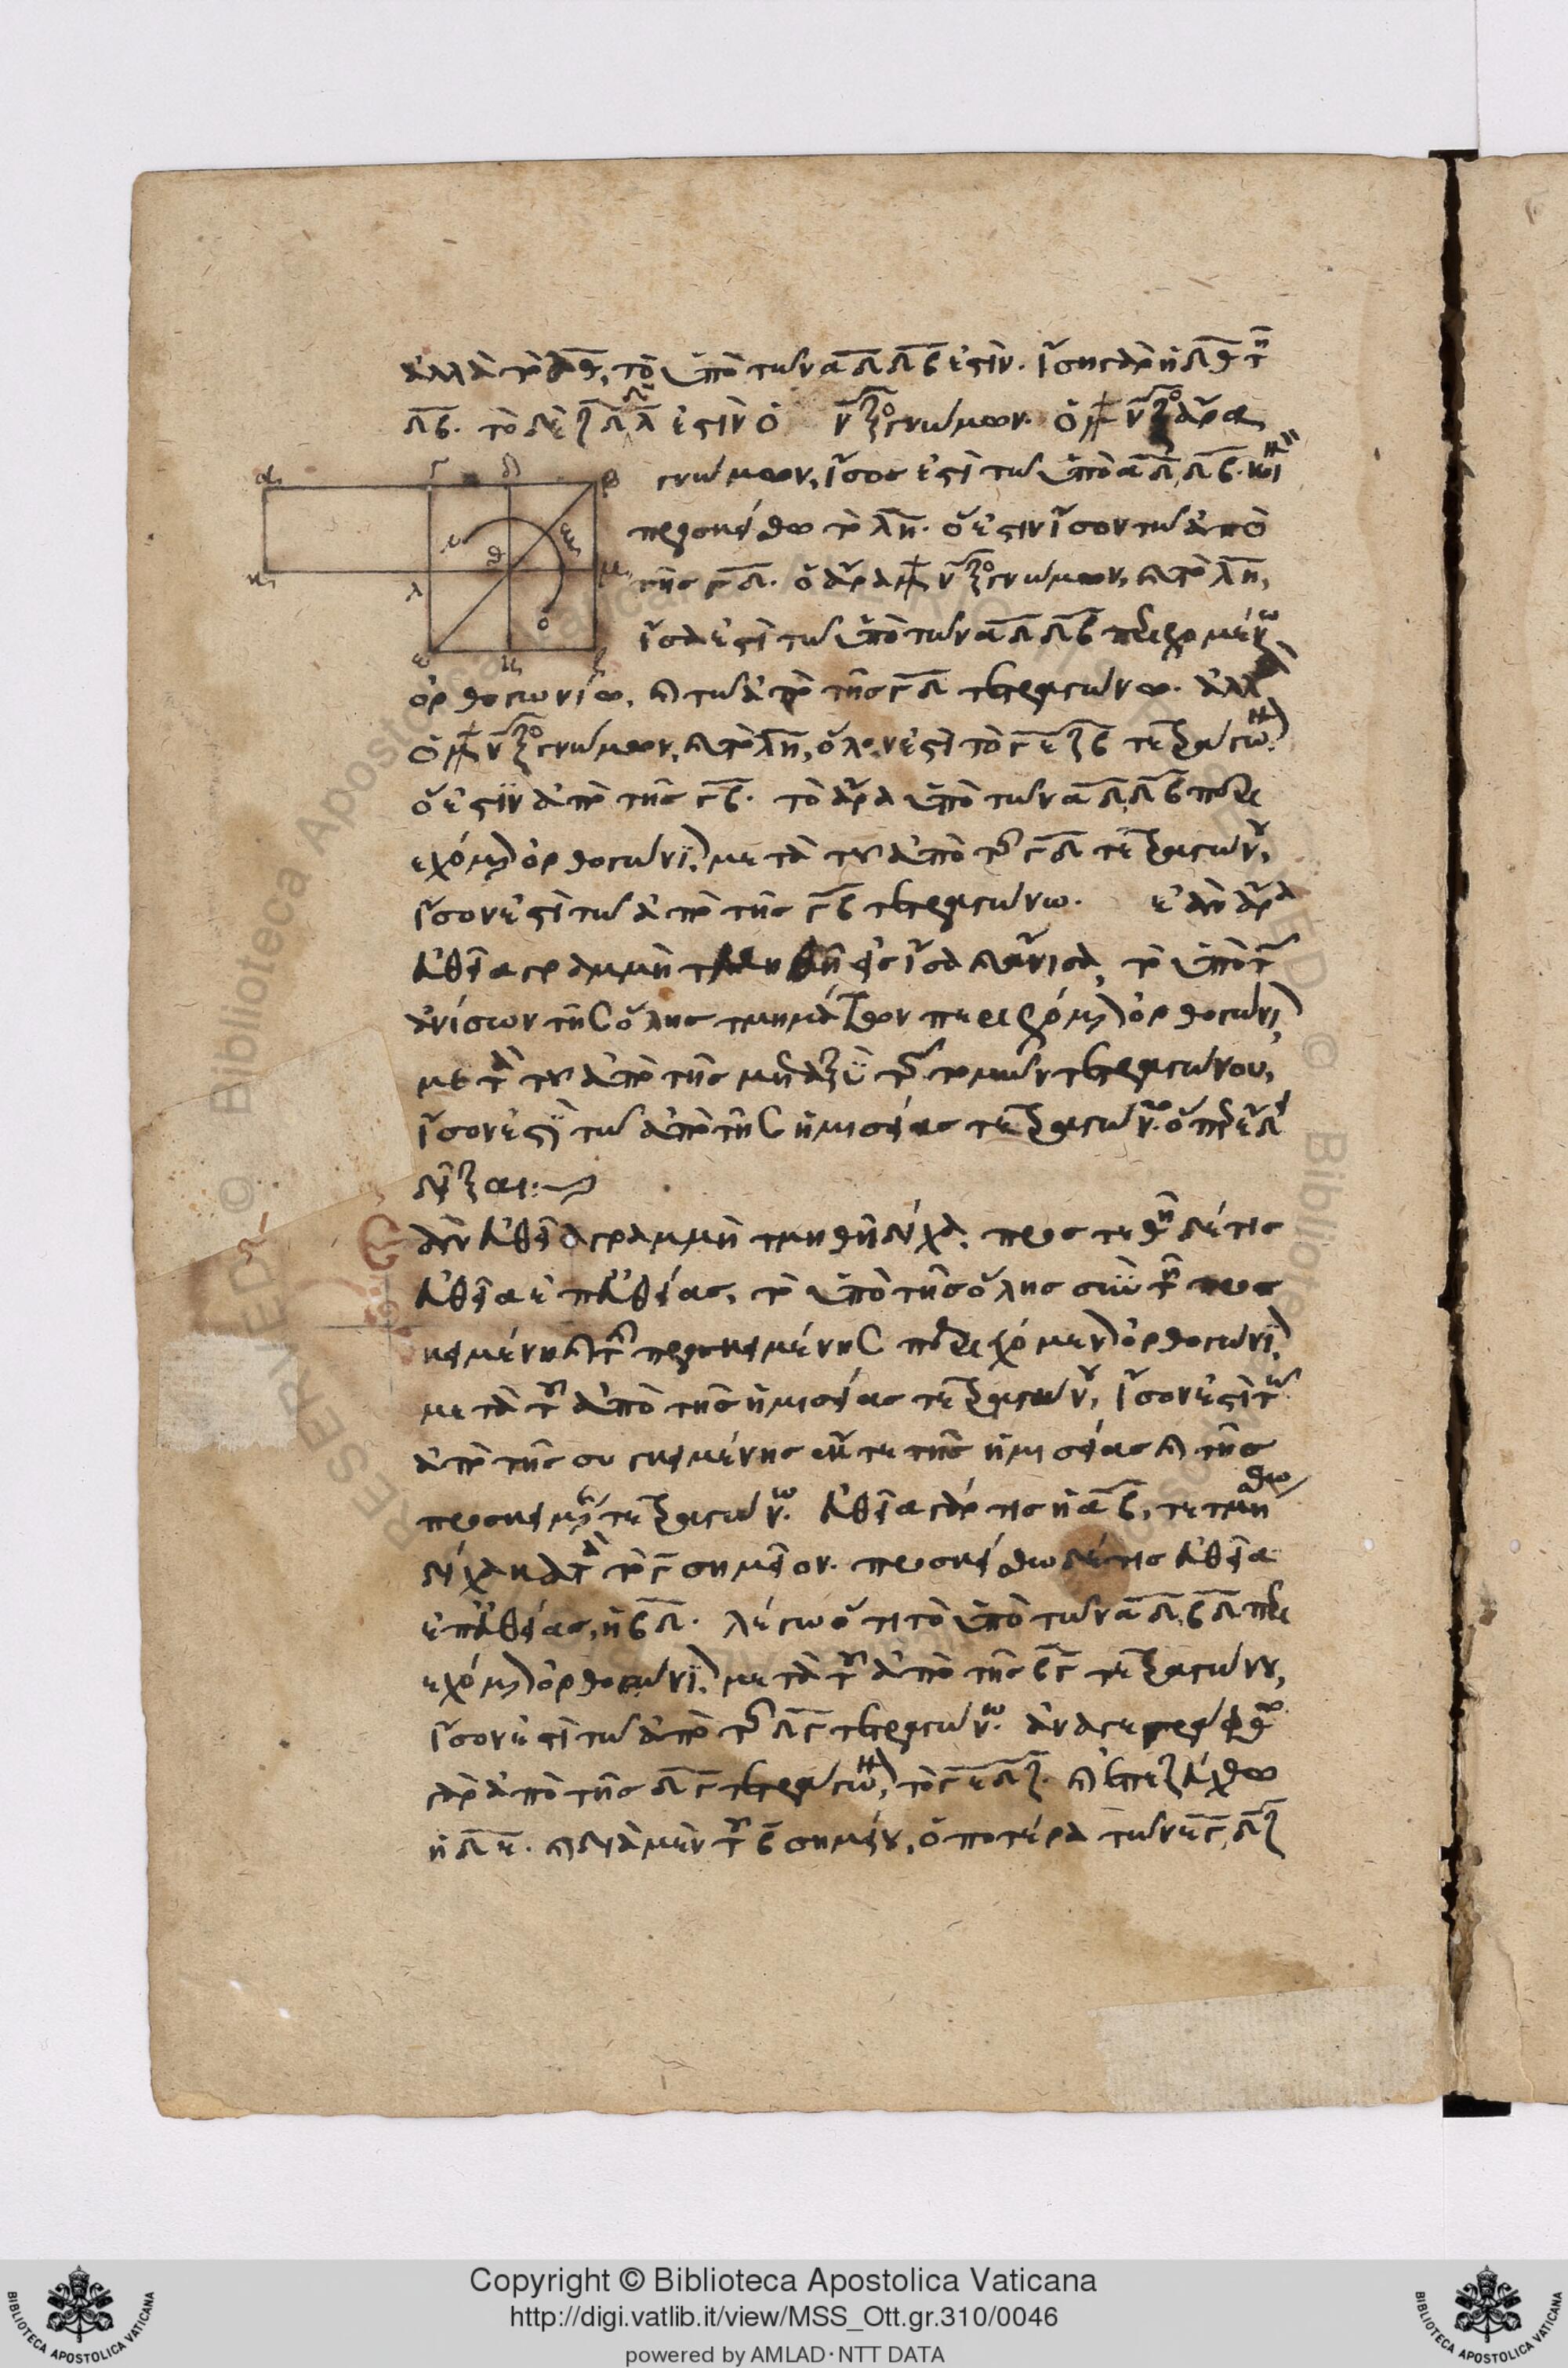 ἀλλὰ τὸ αθ, τὸ ὑπὸ τῶν αδ δβ ἐστίν. ἴση γὰρ ἡ δθ τῇ
δβ. τὸ δὲ ζδ δλ ἐστὶν ὁ νξο γνώμων. ὁ νξο ἄρα
γνώμων, ἴσος ἐστὶ τῶ ὑπὸ αδ, δβ. κοι
προσκείσθω τὸ λη. ὅ ἐστιν ἴσον τῶ ἀπὸ
τῆς γδ. ὁ ἄρα νξο γνώμων, καὶ τὸ λη,
ἴσα ἐστὶ τῶ ὑπὸ τῶν αδ δβ περιεχομένω
ὀρθογωνίω, καὶ τῶ ἀπὸ τῆς γδ τετραγώνω. ἀλλὰ
ὁ νξο γνώμων, καὶ τὸ λη, ὅλον ἐστὶ τὸ γεζβ τετράγωνον.
ὅ ἐστιν ἀπὸ τῆς γβ. τὸ ἄρα ὑπὸ τῶν αδ, δβ περι
εχόμενον ὀρθογώνιον, μετὰ τοῦ ἀπὸ τῆς γδ τετραγώνου,
ἴσον ἐστὶ τῶ ἀπὸ τῆς γβ τετραγώνω. ἐὰν ἄρα
εὐθεῖα γραμμὴ τμηθῆ εἰς ἴσα καὶ ἄνισα, τὸ ὑπὸ τῶν
ἀνίσων τῆς ὅλης τμημάτων περιεχόμενον ὀρθογώνιον,
μετὰ τοῦ ἀπὸ τῆς μεταξὺ τῶν τομῶν τετραγώνου,
ἴσον ἐστὶ τῶ ἀπὸ τῆς ἡμισείας τετραγώνω. ὅπερ ἔδει
δεῖξαι:
ς
ἐὰν εὐθεῖα γραμμὴ τμηθῆ δίχα, προστεθῆ δέ τις
εὐθεῖα ἐπ' εὐθείας, τὸ ὑπὸ τῆς ὅλης σὺν τῆ προσ
κειμένη καὶ τῆς προσκειμένης περιεχόμενον ὀρθογώνιον,
μετὰ τοῦ ἀπὸ τῆς ἡμισείας τετραγώνου, ἴσον ἐστὶ τῶ
ἀπὸ τῆς συγκειμένης ἔκ τε τῆς ἡμισείας καὶ τῆς
προσκειμένης τετραγώνω. εὐθεῖα γάρ τις ἡ αβ, τετμήσθω
δίχα κατὰ τὸ γ σημεῖον. προσκείσθω δέ τις εὐθεῖα
ἐπ' εὐθείας, ἡ βδ. λέγω ὅτι τὸ ὑπὸ τῶν αδ, βδ περι
εχόμενον ὀρθογώνιον, μετὰ τοῦ ἀπὸ τῆς βγ τετραγώνου,
ἴσον ἐστὶ τῶ ἀπὸ τῆς δγ τετραγώνω. ἀναγεγράφθω
γὰρ ἀπὸ τῆς δγ τετράγωνον, τὸ γεδζ. καὶ ἐπεζεύχθω
ἡ δε. καὶ διὰ μὲν τοῦ β σημείου, ὁποτέρα τῶν εγ, δζ
α γ δ β
ν θ ξ
κ λ μ
ο
ε η ζ
Copyright © Biblioteca Apostolica Vaticana
http://digi.vatlib.it/view/MSS_Ott.gr.310/0046
powered by AMLAD · NTT DATA
BIBLIOTECA APOSTOLICA VATICANA
BIBLIOTECA APOSTOLICA VATICANA